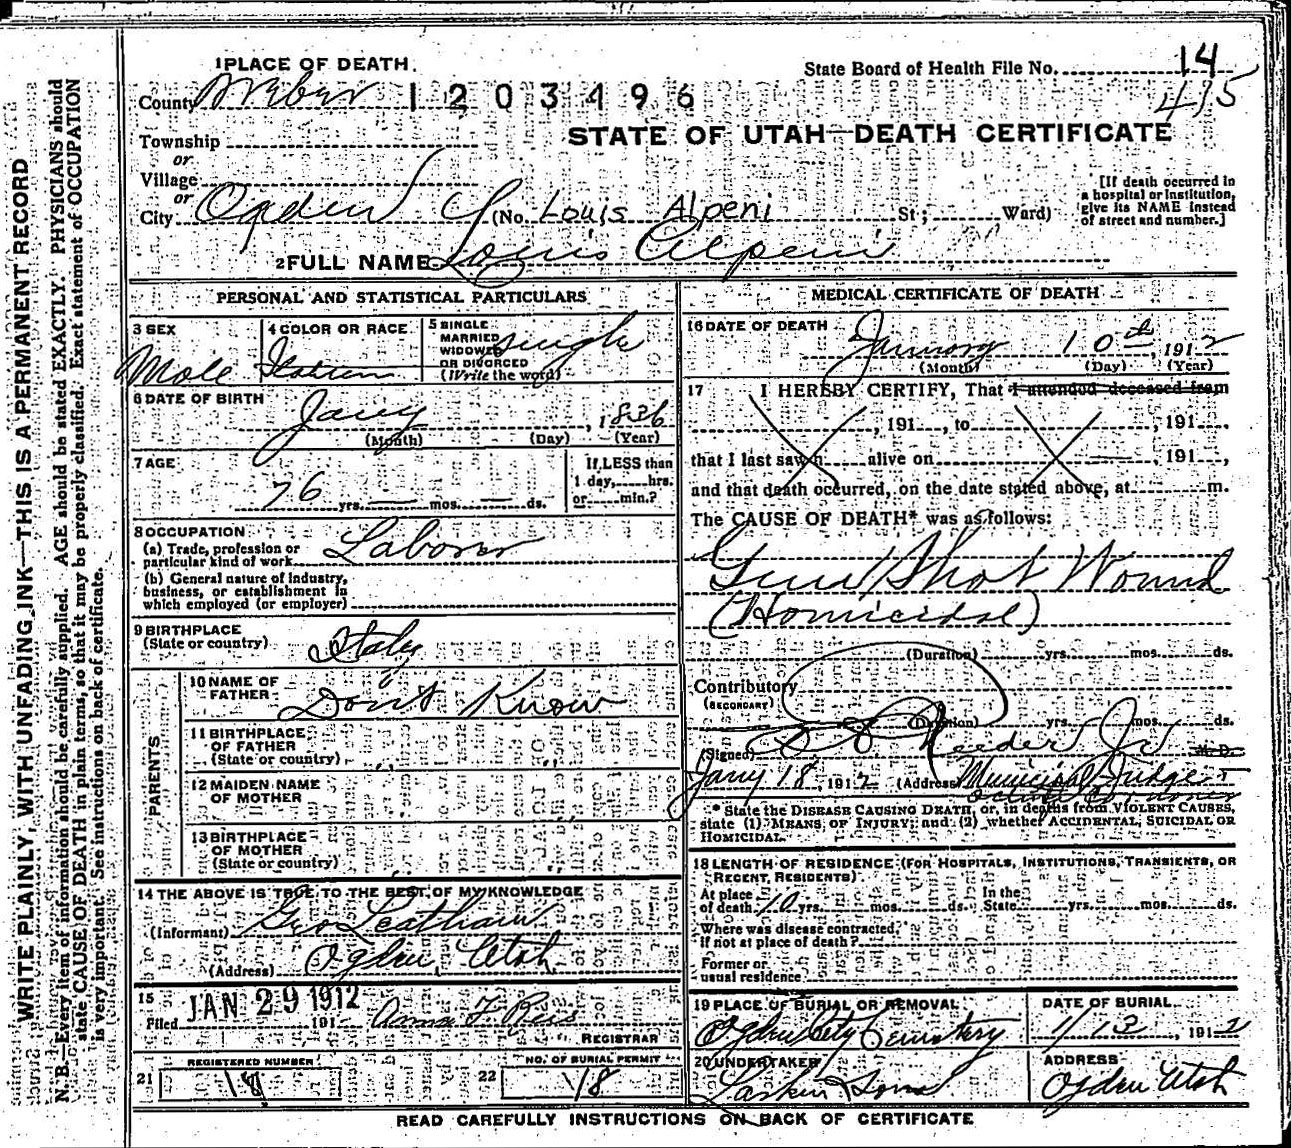 WRITE PLAINLY, WITH UNFADING INK—THIS IS A PERMANENT RECORD
N. B.—Every item of information should be carefully supplied. AGE should be stated EXACTLY. PHYSICIANS should
state CAUSE OF DEATH in plain terms, so that it may be properly classified. Exact statement of OCCUPATION
is very important. See instructions on back of certificate.
1 PLACE OF DEATH
State Board of Health File No. 14
County Weber 1203496
415
STATE OF UTAH—DEATH CERTIFICATE
Township
or
Village
or
City Ogden (No. Louis Alpeni St; Ward)
[If death occurred in
a hospital or institution,
give its NAME instead
of street and number.]
2 FULL NAME Louis Alpeni
PERSONAL AND STATISTICAL PARTICULARS
3 SEX
Male
4 COLOR OR RACE
Italian
5 SINGLE
MARRIED
WIDOWED
OR DIVORCED
(Write the word)
single
6 DATE OF BIRTH
Jany, 1836
(Month) (Day) (Year)
7 AGE
76 yrs. — mos. — ds.
If LESS than
1 day, hrs.
or min.?
8 OCCUPATION
(a) Trade, profession or
particular kind of work Laborer
(b) General nature of industry,
business, or establishment in
which employed (or employer)
9 BIRTHPLACE
(State or country) Italy
PARENTS
10 NAME OF
FATHER Dont Know
11 BIRTHPLACE
OF FATHER
(State or country)
12 MAIDEN NAME
OF MOTHER
13 BIRTHPLACE
OF MOTHER
(State or country)
14 THE ABOVE IS TRUE TO THE BEST OF MY KNOWLEDGE
(Informant) Geo Leatham
(Address) Ogden Utah
15
Filed JAN 29 1912 191 Anna F Reis
REGISTRAR
21 REGISTERED NUMBER
18
22 NO. OF BURIAL PERMIT
18
MEDICAL CERTIFICATE OF DEATH
16 DATE OF DEATH
January 10th, 1912
(Month) (Day) (Year)
17 I HEREBY CERTIFY, That I attended deceased from
, 191 , to , 191 ,
that I last saw h alive on 191 ,
and that death occurred, on the date stated above, at m.
The CAUSE OF DEATH* was as follows:
Gun Shot Wound
(Homicidal)
(Duration) yrs. mos. ds.
Contributory
(SECONDARY)
(Duration) yrs. mos. ds.
(Signed) Reeder Jr M. D.
Jany 18, 1912 (Address) Municipal Judge
* State the DISEASE CAUSING DEATH, or, in deaths from VIOLENT CAUSES,
state (1) MEANS OF INJURY; and (2) whether ACCIDENTAL, SUICIDAL OR
HOMICIDAL.
18 LENGTH OF RESIDENCE (FOR HOSPITALS, INSTITUTIONS, TRANSIENTS, OR
RECENT RESIDENTS)
At place
of death 10 yrs. mos. ds.
In the
State yrs. mos. ds.
Where was disease contracted,
If not at place of death?
Former or
usual residence
19 PLACE OF BURIAL OR REMOVAL
Ogden City Cemetery
DATE OF BURIAL
1/13, 1912
20 UNDERTAKER
Larkin & Sons
ADDRESS
Ogden Utah
READ CAREFULLY INSTRUCTIONS ON BACK OF CERTIFICATE